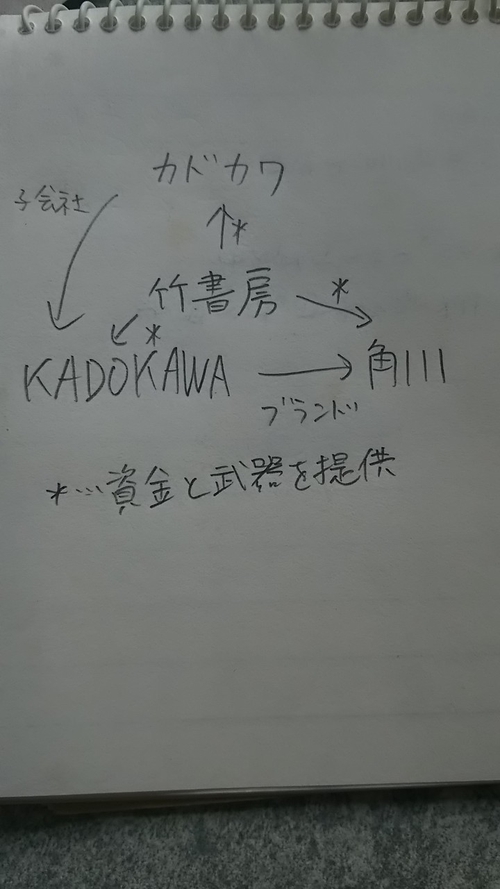 カドカワ
子会社
*
竹書房
*
*
KADOKAWA
角川
ブランド
*…資金と武器を提供